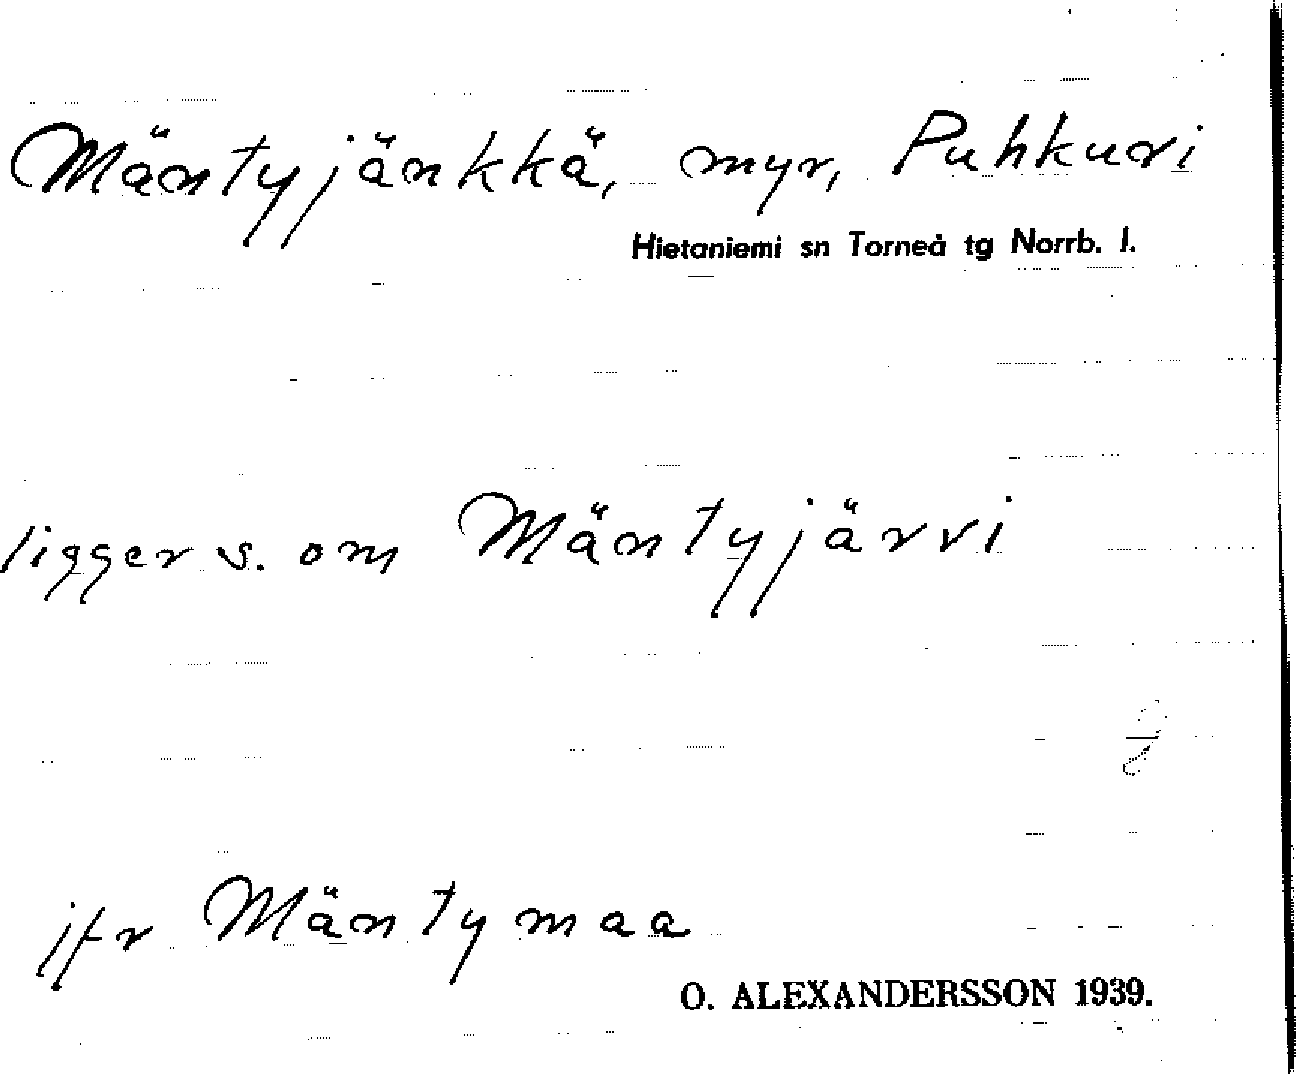 Mäntyjänkkä, myr, Puhkuri
Hietaniemi sn Torneå tg Norrb. l.
ligger s. om Mäntyjärvi
jfr Mäntymaa
O. ALEXANDERSSON 1939.